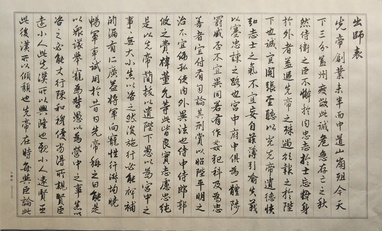 出師表
先帝創業未半而中道崩殂今天
下三分益州疲敝此誠危急存亡之秋
然侍衛之臣不懈於內忠志之士忘身
於外者蓋追先帝之殊遇欲報之於陛
下也誠宜開張聖聽以光先帝遺德恢
弘志士之氣不宜妄自菲薄引喻失義
以塞忠諫之路也宮中府中俱為一體陟
罰臧否不宜異同若有作奸犯科及為忠
善者宜付有司論其刑賞以昭陛下平明之
治不宜偏私使內外異法也侍中侍郎郭
攸之費禕董允等此皆良實志慮忠純
是以先帝簡拔以遺陛下愚以為宮中之
事無大小悉以咨之然後施行必能裨補
闕漏有所廣益將軍向寵性行淑均曉
暢軍事試用於昔日先帝稱之曰能是
以眾議舉寵為督愚以為營中之事悉以
咨之必能使行陣和睦優劣得所親賢臣
遠小人此先漢所以興隆也親小人遠賢臣
此後漢所以傾頹也先帝在時每與臣論此